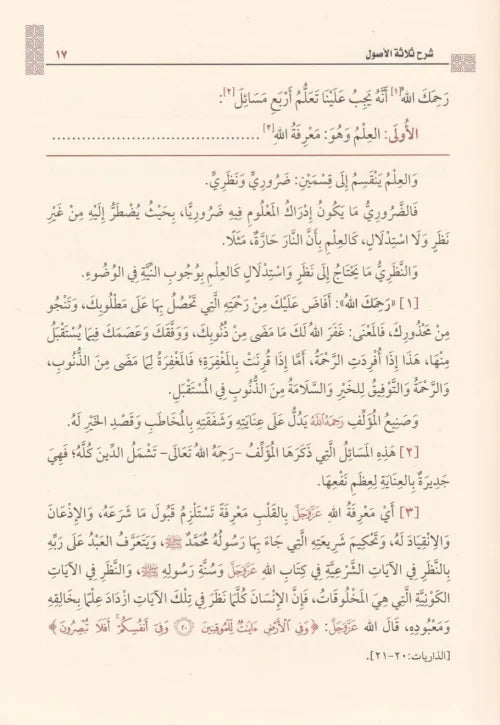 شرح ثلاثة الأصول
١٧
رَحِمَكَ اللهُ[١] أَنَّهُ يَجِبُ عَلَيْنَا تَعَلُّمُ أَرْبَعِ مَسَائِلَ[٢]:
الأُولَى: العِلْمُ وَهُوَ: مَعْرِفَةُ اللهِ[٣] ........................................
وَالعِلْمُ يَنْقَسِمُ إِلَى قِسْمَيْنِ: ضَرُورِيٌّ وَنَظَرِيٌّ.
فَالضَّرُورِيُّ مَا يَكُونُ إِدْرَاكُ المَعْلُومِ فِيهِ ضَرُورِيًّا، بِحَيْثُ يُضْطَرُّ إِلَيْهِ مِنْ غَيْرِ
نَظَرٍ وَلَا اسْتِدْلَالٍ، كَالعِلْمِ بِأَنَّ النَّارَ حَارَّةٌ، مَثَلًا.
وَالنَّظَرِيُّ مَا يَحْتَاجُ إِلَى نَظَرٍ وَاسْتِدْلَالٍ كَالعِلْمِ بِوُجُوبِ النِّيَّةِ فِي الوُضُوءِ.
[١] «رَحِمَكَ اللهُ»: أَفَاضَ عَلَيْكَ مِنْ رَحْمَتِهِ الَّتِي تَحْصُلُ بِهَا عَلَى مَطْلُوبِكَ، وَتَنْجُو
مِنْ مَحْذُورِكَ، فَالمَعْنَى: غَفَرَ اللهُ لَكَ مَا مَضَى مِنْ ذُنُوبِكَ، وَوَفَّقَكَ وَعَصَمَكَ فِيمَا يُسْتَقْبَلُ
مِنْهَا، هَذَا إِذَا أُفْرِدَتِ الرَّحْمَةُ، أَمَّا إِذَا قُرِنَتْ بِالمَغْفِرَةِ؛ فَالمَغْفِرَةُ لِمَا مَضَى مِنَ الذُّنُوبِ،
وَالرَّحْمَةُ وَالتَّوْفِيقُ لِلخَيْرِ وَالسَّلَامَةُ مِنَ الذُّنُوبِ فِي المُسْتَقْبَلِ.
وَصَنِيعُ المُؤَلِّفِ رَحِمَهُ اللَّهُ يَدُلُّ عَلَى عِنَايَتِهِ وَشَفَقَتِهِ بِالمُخَاطَبِ وَقَصْدِ الخَيْرِ لَهُ.
[٢] هَذِهِ المَسَائِلُ الَّتِي ذَكَرَهَا المُؤَلِّفُ -رَحِمَهُ اللهُ تَعَالَى- تَشْمَلُ الدِّينَ كُلَّهُ؛ فَهِيَ
جَدِيرَةٌ بِالعِنَايَةِ لِعِظَمِ نَفْعِهَا.
[٣] أَيْ مَعْرِفَةُ اللهِ عَزَّوَجَلَّ بِالقَلْبِ مَعْرِفَةً تَسْتَلْزِمُ قَبُولَ مَا شَرَعَهُ، وَالإِذْعَانَ
وَالِانْقِيَادَ لَهُ، وَتَحْكِيمَ شَرِيعَتِهِ الَّتِي جَاءَ بِهَا رَسُولُهُ مُحَمَّدٌ ﷺ، وَيَتَعَرَّفُ العَبْدُ عَلَى رَبِّهِ
بِالنَّظَرِ فِي الآيَاتِ الشَّرْعِيَّةِ فِي كِتَابِ اللهِ عَزَّوَجَلَّ وَسُنَّةِ رَسُولِهِ ﷺ، وَالنَّظَرِ فِي الآيَاتِ
الكَوْنِيَّةِ الَّتِي هِيَ المَخْلُوقَاتُ، فَإِنَّ الإِنْسَانَ كُلَّمَا نَظَرَ فِي تِلْكَ الآيَاتِ ازْدَادَ عِلْمًا بِخَالِقِهِ
وَمَعْبُودِهِ، قَالَ اللهُ عَزَّوَجَلَّ: ﴿وَفِي ٱلْأَرْضِ ءَايَـٰتٌ لِّلْمُوقِنِينَ ۝٢٠ وَفِىٓ أَنفُسِكُمْ ۚ أَفَلَا تُبْصِرُونَ﴾
[الذاريات:٢٠-٢١].